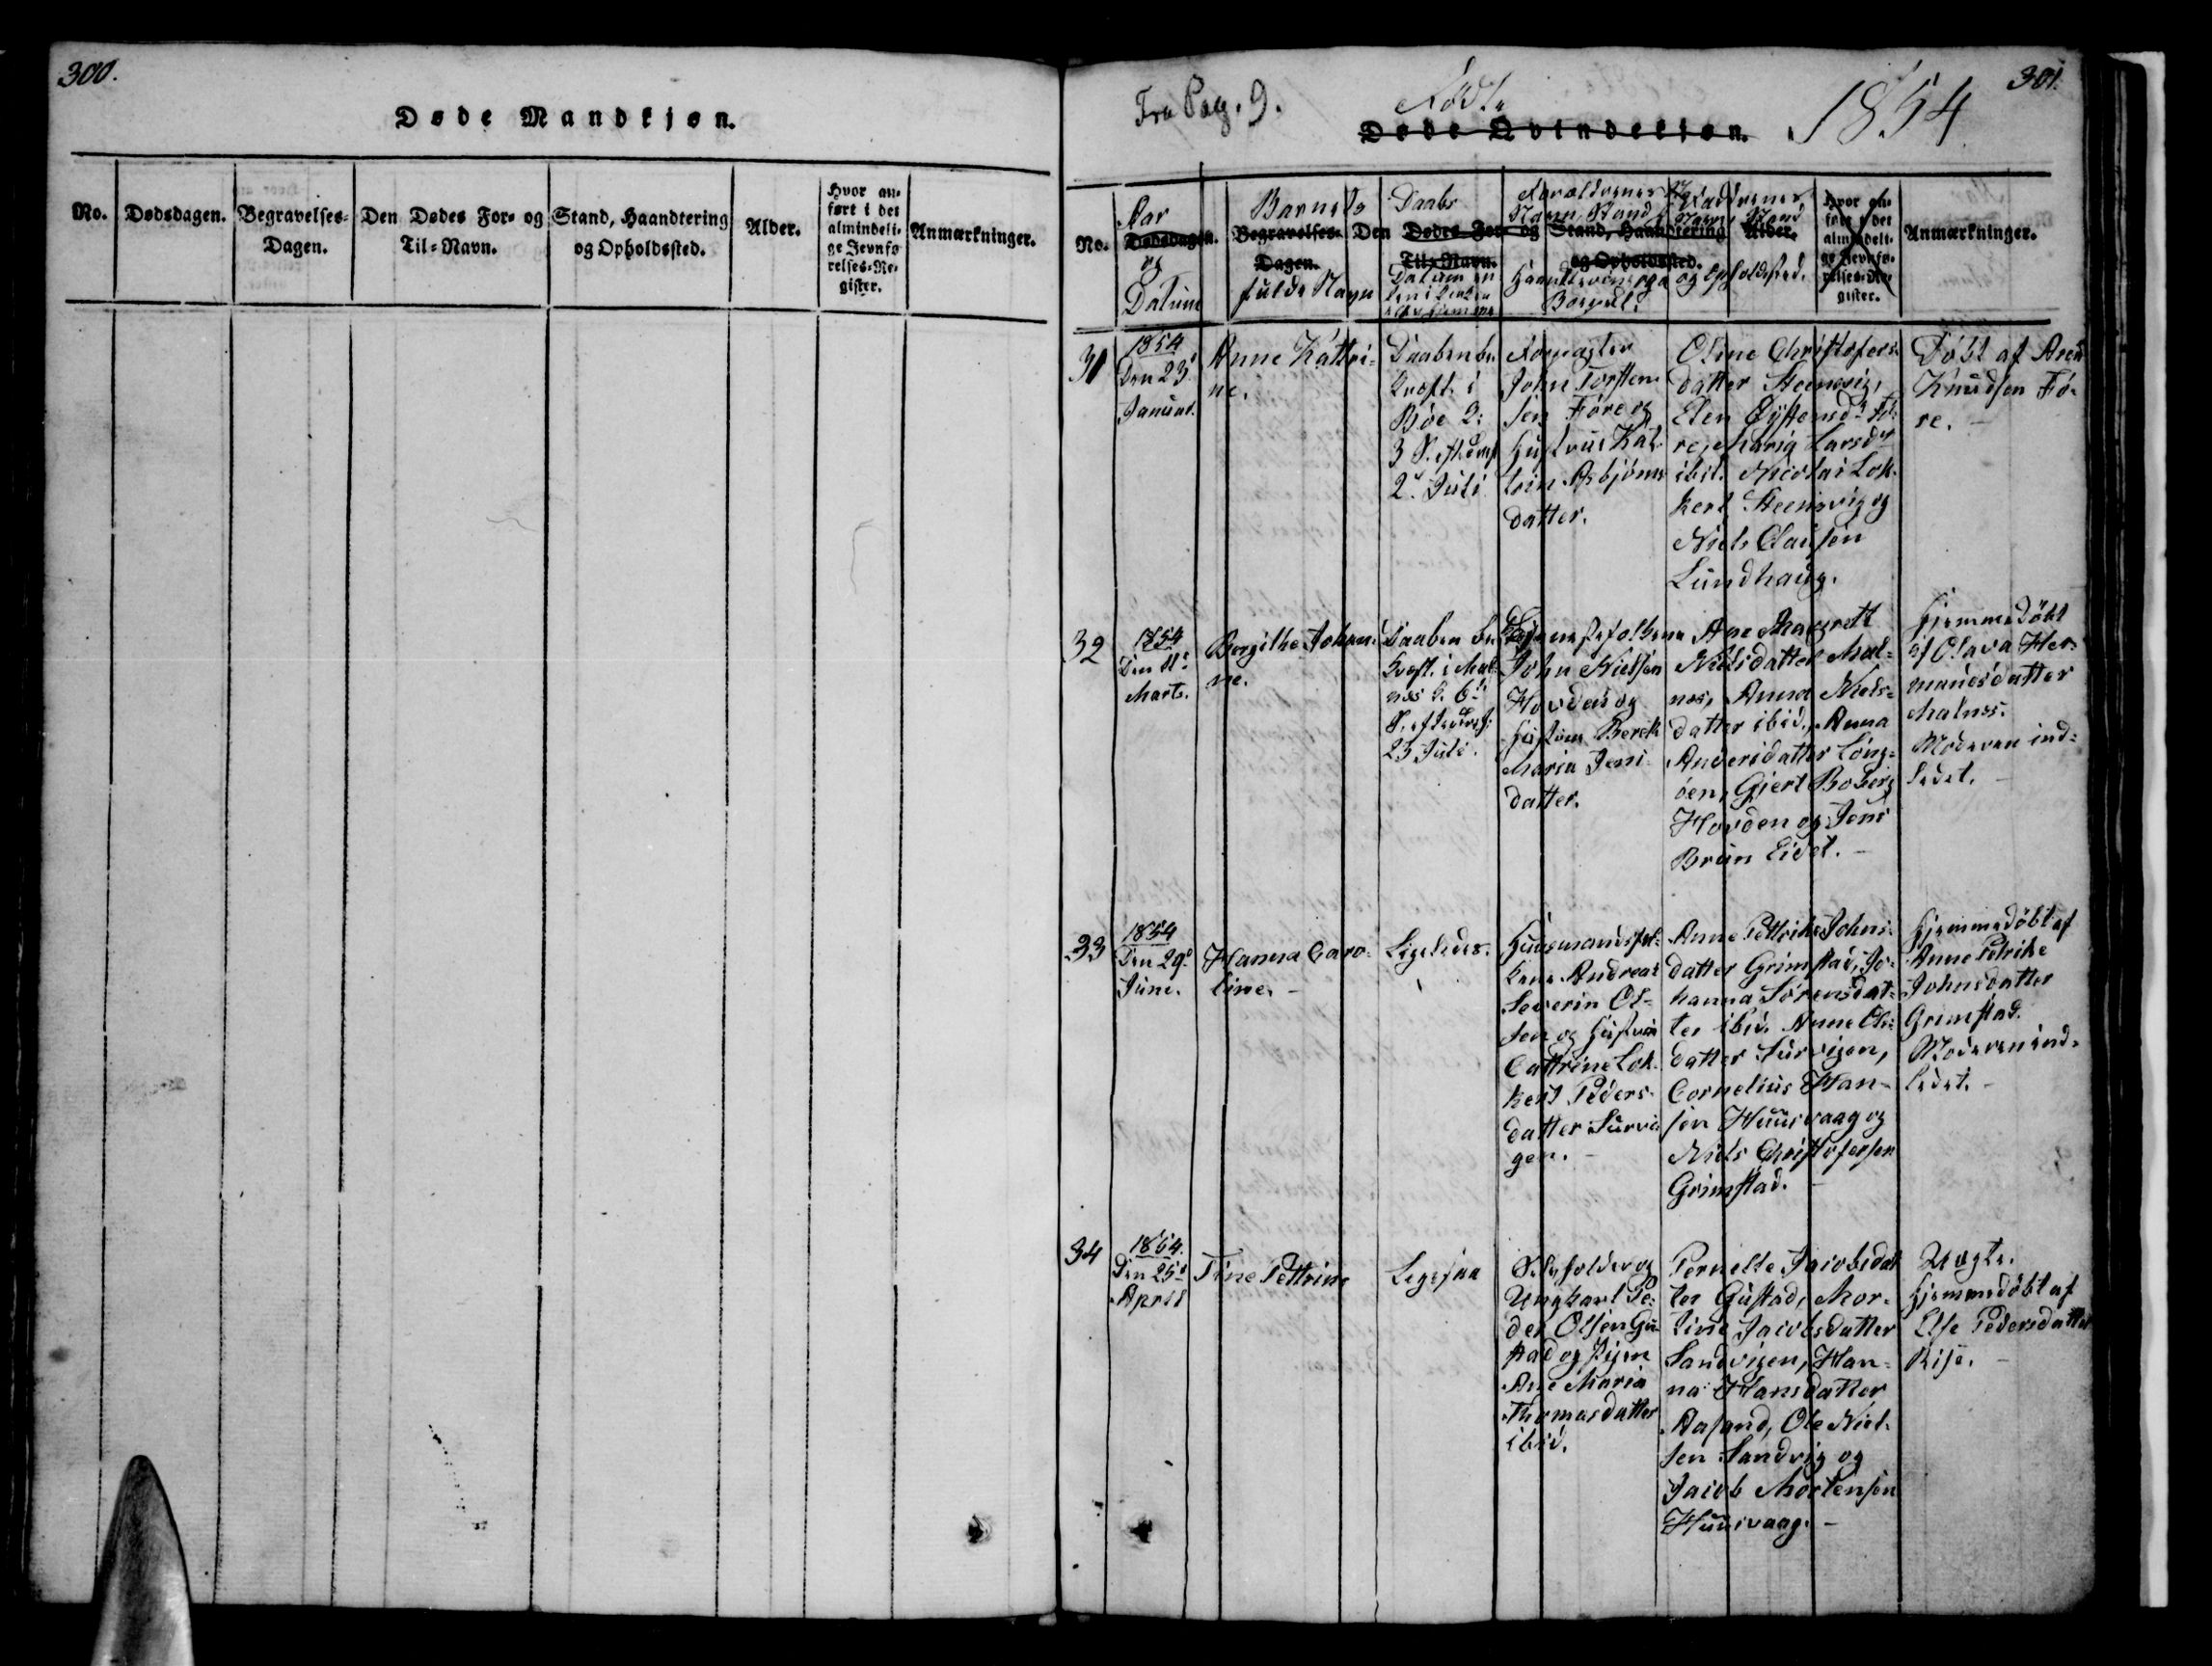 300.
Døde Mandkjøn.
No.
Dødsdagen.
Begravelses-
Dagen.
Den Dødes For- og
Til-Navn.
Stand, Haandtering
og Opholdssted.
Alder.
Hvor an-
ført i det
almindeli-
ge Jevnfø
relses-Re-
gister.
Anmærkninger.
301.
Fra Pag. 9.
Fødte
Døde Qvindekjøn.
1854
No.
Aar
Dødsdagen.
og
Datum
Barnets
Begravelses-
Dagen.
fulde Navn
Daabs
Den Dødes For- og
Til-Navn.
Datum
Forældrenes
Navn, Stand
Stand, Haandtering
og Opholdssted.
Faddernes
Navn, Stand
Alder.
og Opholdssted.
Hvor an-
ført i det
almindeli-
ge Jevnfø-
relses-Re-
gister.
Anmærkninger.
31
1854
Den 23d
Januar.
Anne Kattri-
ne.
Daaben be-
kræft. i
Bøe D:
3 S. eft.
2d Juli
John Torsten-
sen Føre og
Hustrue Kat-
trin Asbjørns
datter.
Oline Christofers-
datter Steensvig,
Elen Øystensdr Fø-
re, Maria Larsdr
ibid. Nicolai Lok-
kert Steensvig og
Niels Claussen
Lundhaug.
Døbt af Aren
Knudsen Fø-
re. –
32
1854
Den 11d
Marts.
Bergithe Johan-
ne.
Daaben be-
kræft. i Mal-
næs D. 6te
S. eft.
23 Juli.
John Nielsen
Hovden og
Hustrue Berek
Maria Jens
datter.
Ane Magrett
Nielsdatter Mal-
næs, Anna Niels-
datter ibid., Anna
Andersdatter Lang-
øen, Gjert Boberg
Hovden og Jens
Brun Eidet. –
Hjemmedøbt
af Olava Her-
mansdatter
Malnæs.
Moderen ind-
ledet. –
33
1854
Den 29d
Juni.
Hanna Caro-
line. –
Ligeledes.
Huusmandsfol-
kene Andreas
Severin Ol-
sen og Hustrue
Cattrine Lok-
kert Peders-
datter Survi-
gen. –
Anne Pettrike Johns-
datter Grimstad, Jo-
hanna Sørensdat-
ter ibid. Anne Ols-
datter Survigen,
Cornelius Han-
sen Huusvaag og
Niels Christofersen
Grimstad. –
Hjemmedøbt af
Anne Petrike
Johnsdatter
Grimstad.
Moderen ind-
ledet. –
34
1854.
Den 25d
April
Tine Pettrine
Ligesaa
Selvholder og
Ungkarl Pe-
der Olsen Gu-
stad og Pigen
Ane Maria
Thomasdatter
ibid.
Pernelle Jacobsdat-
ter Gustad, Mor-
tine Jacobsdatter
Sandvigen, Han-
na Hansdatter
Aasand, Ole Niel-
sen Sandvig og
Jacob Mortensen
Huusvaag. –
Uægte.
Hjemmedøbt af
Else Pedersdatter
Rise. –